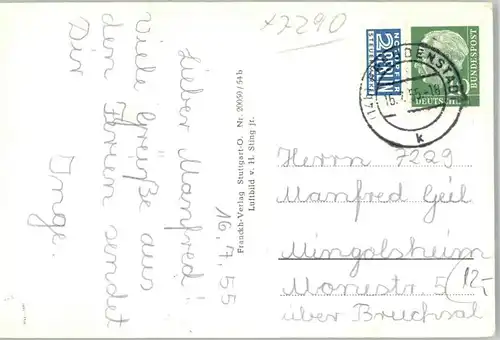 x7290
16.7.55
Lieber Manfred!
Viele Grüße aus
den Ferien sendet
Dir
Inge.
Franckh-Verlag Stuttgart-O. Nr. 20050/54b
Luftbild v. H. Sting jr.
NOTOPFER
2 BERLIN
STEUERMARKE
DEUTSCHE
BUNDESPOST
FREUDENSTADT
k
Herrn 7229
Manfred Geil
Mingolsheim
Monestr. 5
12,-
über Bruchsal